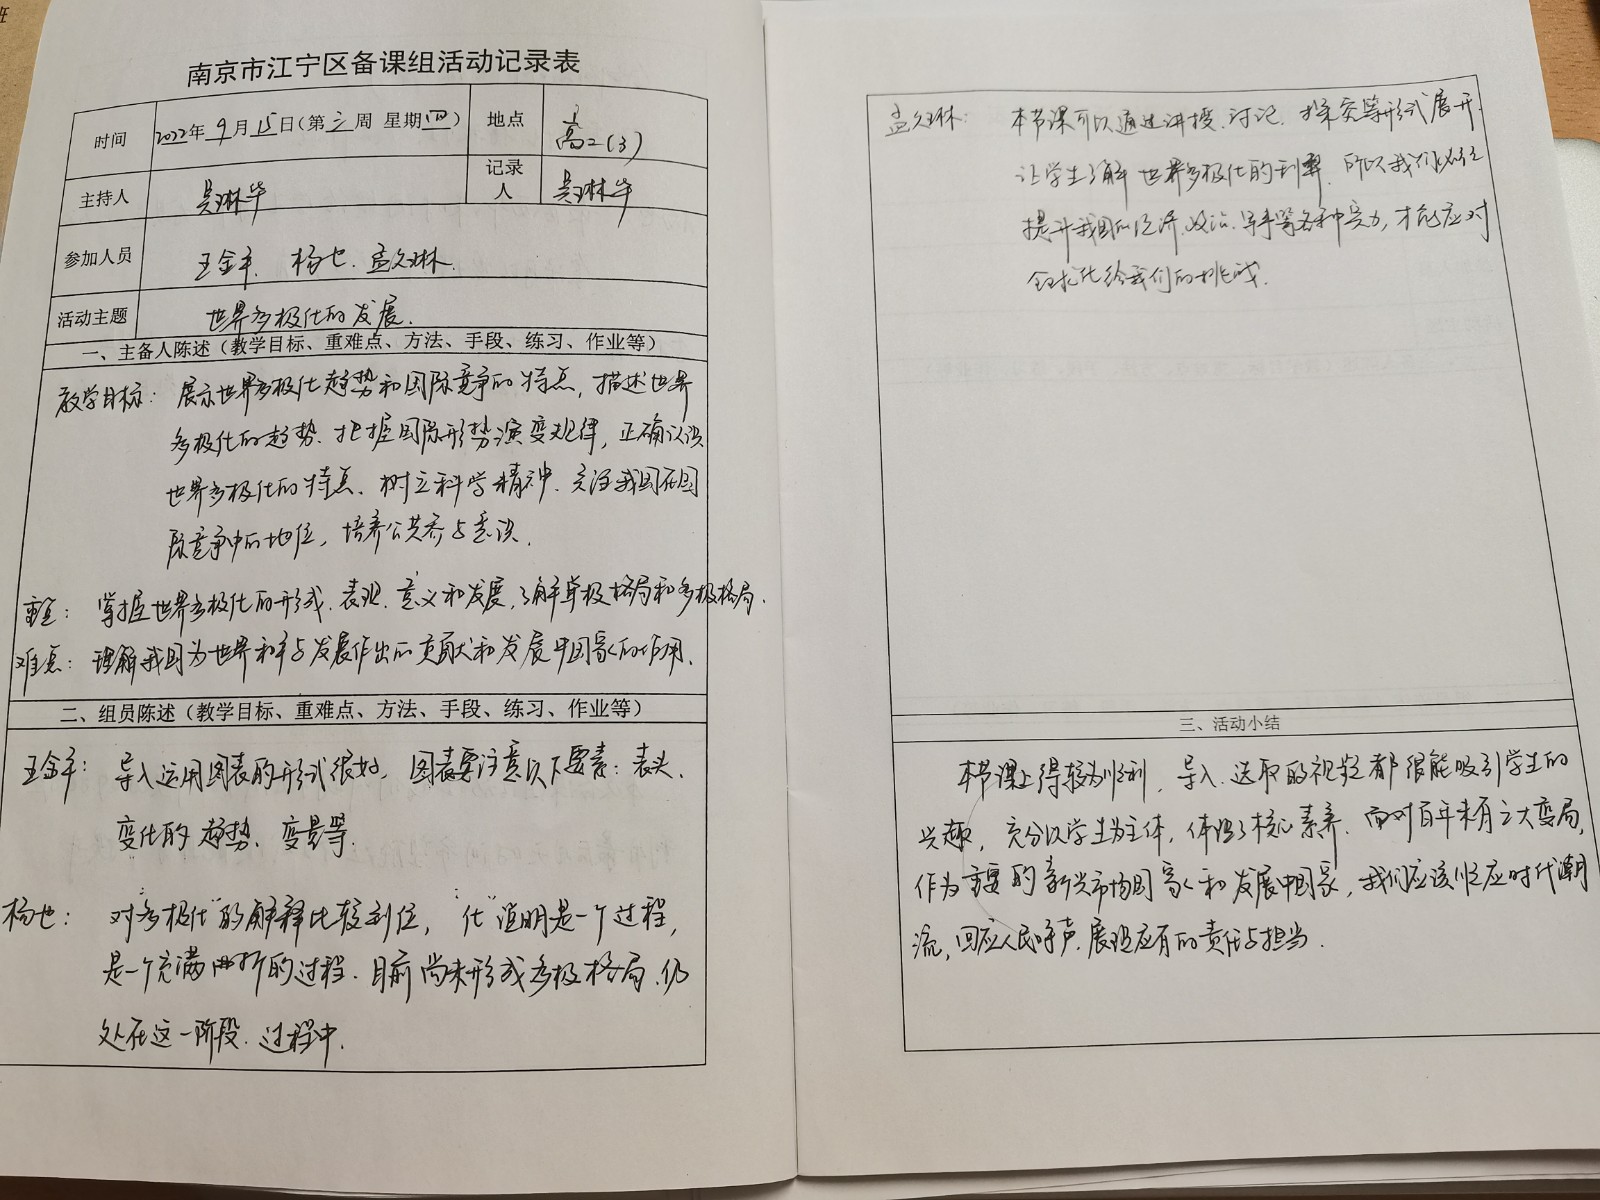 班
南京市江宁区备课组活动记录表
时间 2022年9月15日(第三周 星期四) 地点 高二(3)
主持人 吴琳华 记录人 吴琳华
参加人员 王金平、杨七、孟久琳
活动主题 世界多极化的发展.
一、主备人陈述（教学目标、重难点、方法、手段、练习、作业等）
教学目标：展示世界多极化趋势和国际竞争的特点，描述世界
多极化的趋势、把握国际形势演变规律，正确认识
世界多极化的特点、树立科学精神、关注我国在国
际竞争中的地位，培养公共参与意识.
重点：掌握世界多极化的形成、表现、意义和发展，了解单极格局和多极格局.
难点：理解我国为世界和平与发展作出的贡献和发展中国家的作用.
二、组员陈述（教学目标、重难点、方法、手段、练习、作业等）
王金平：导入运用图表的形式很好，图表要注意以下要素：表头、
变化的趋势、变量等.
杨七：对"多极化"的解释比较到位，"化"说明是一个过程，
是一个充满曲折的过程.目前尚未形成多极格局、仍
处在这一阶段、过程中.
孟久琳：本节课可以通过讲授、讨论、探究等形式展开.
让学生了解世界多极化的利弊，所以我们必须
提升我国的经济、政治、军事等各种实力，才能应对
全球化给我们的挑战.
三、活动小结
本节课上得较为顺利，导入、选取的视频都很能吸引学生的
兴趣，充分以学生为主体，体现了核心素养.面对百年未有之大变局，
作为主要的新兴市场国家和发展中国家，我们应该顺应时代潮
流，回应人民呼声，展现应有的责任与担当.